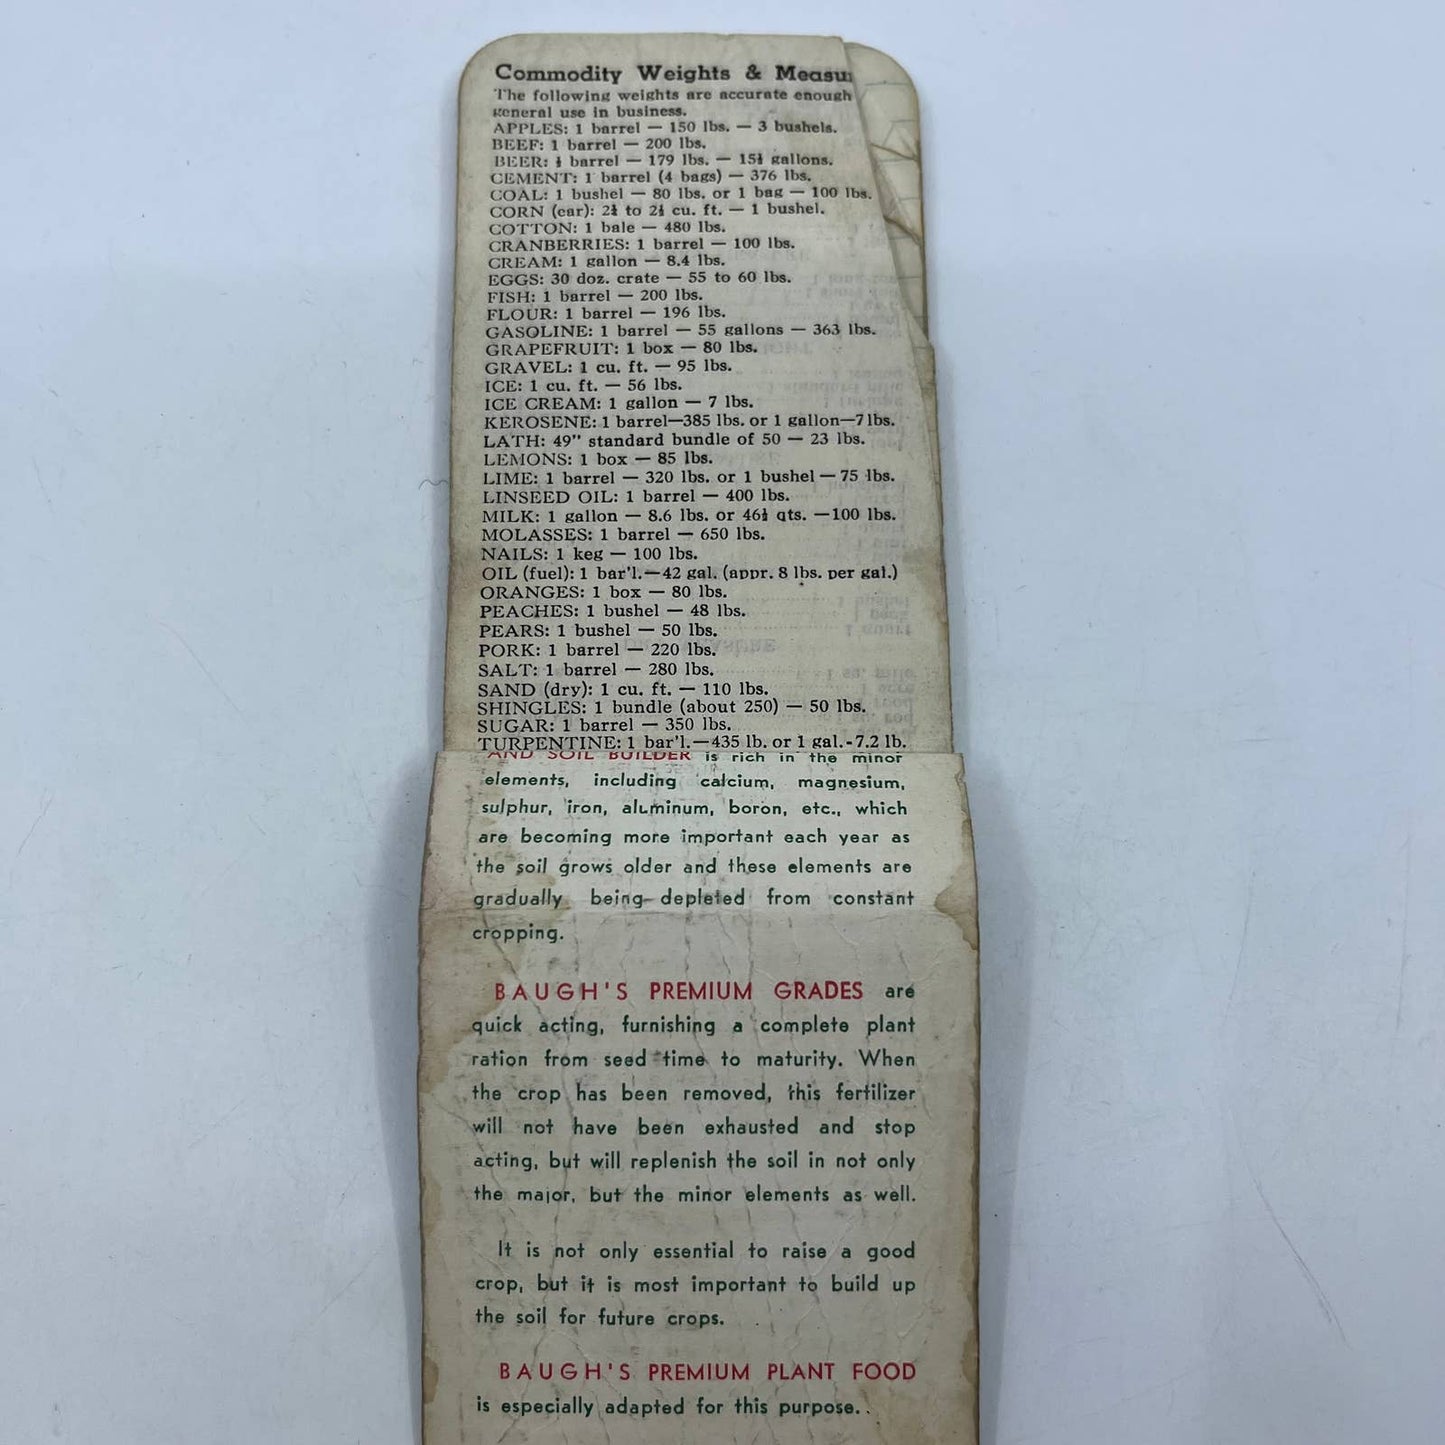 Commodity Weights & Measu
The following weights are accurate enough
general use in business.
APPLES: 1 barrel — 150 lbs. — 3 bushels.
BEEF: 1 barrel — 200 lbs.
BEER: ½ barrel — 179 lbs. — 15½ gallons.
CEMENT: 1 barrel (4 bags) — 376 lbs.
COAL: 1 bushel — 80 lbs. or 1 bag — 100 lbs.
CORN (ear): to cu. ft. — 1 bushel.
COTTON: 1 bale — 480 lbs.
CRANBERRIES: 1 barrel — 100 lbs.
CREAM: 1 gallon — 8.4 lbs.
EGGS: 30 doz. crate — 55 to 60 lbs.
FISH: 1 barrel — 200 lbs.
FLOUR: 1 barrel — 196 lbs.
GASOLINE: 1 barrel — 55 gallons — 363 lbs.
GRAPEFRUIT: 1 box — 80 lbs.
GRAVEL: 1 cu. ft. — 95 lbs.
ICE: 1 cu. ft. — 56 lbs.
ICE CREAM: 1 gallon — 7 lbs.
KEROSENE: 1 barrel—385 lbs. or 1 gallon—7 lbs.
LATH: 49" standard bundle of 50 — 23 lbs.
LEMONS: 1 box — 85 lbs.
LIME: 1 barrel — 320 lbs. or 1 bushel — 75 lbs.
LINSEED OIL: 1 barrel — 400 lbs.
MILK: 1 gallon — 8.6 lbs. or 46½ qts. —100 lbs.
MOLASSES: 1 barrel — 650 lbs.
NAILS: 1 keg — 100 lbs.
OIL (fuel): 1 bar'l.—42 gal. (appr. 8 lbs. per gal.)
ORANGES: 1 box — 80 lbs.
PEACHES: 1 bushel — 48 lbs.
PEARS: 1 bushel — 50 lbs.
PORK: 1 barrel — 220 lbs.
SALT: 1 barrel — 280 lbs.
SAND (dry): 1 cu. ft. — 110 lbs.
SHINGLES: 1 bundle (about 250) — 50 lbs.
SUGAR: 1 barrel — 350 lbs.
TURPENTINE: 1 bar'l.—435 lb. or 1 gal.-7.2 lb.
AND SOIL BUILDER is rich in the minor
elements, including calcium, magnesium,
sulphur, iron, aluminum, boron, etc., which
are becoming more important each year as
the soil grows older and these elements are
gradually being depleted from constant
cropping.
BAUGH'S PREMIUM GRADES are
quick acting, furnishing a complete plant
ration from seed time to maturity. When
the crop has been removed, this fertilizer
will not have been exhausted and stop
acting, but will replenish the soil in not only
the major, but the minor elements as well.
It is not only essential to raise a good
crop, but it is most important to build up
the soil for future crops.
BAUGH'S PREMIUM PLANT FOOD
is especially adapted for this purpose.